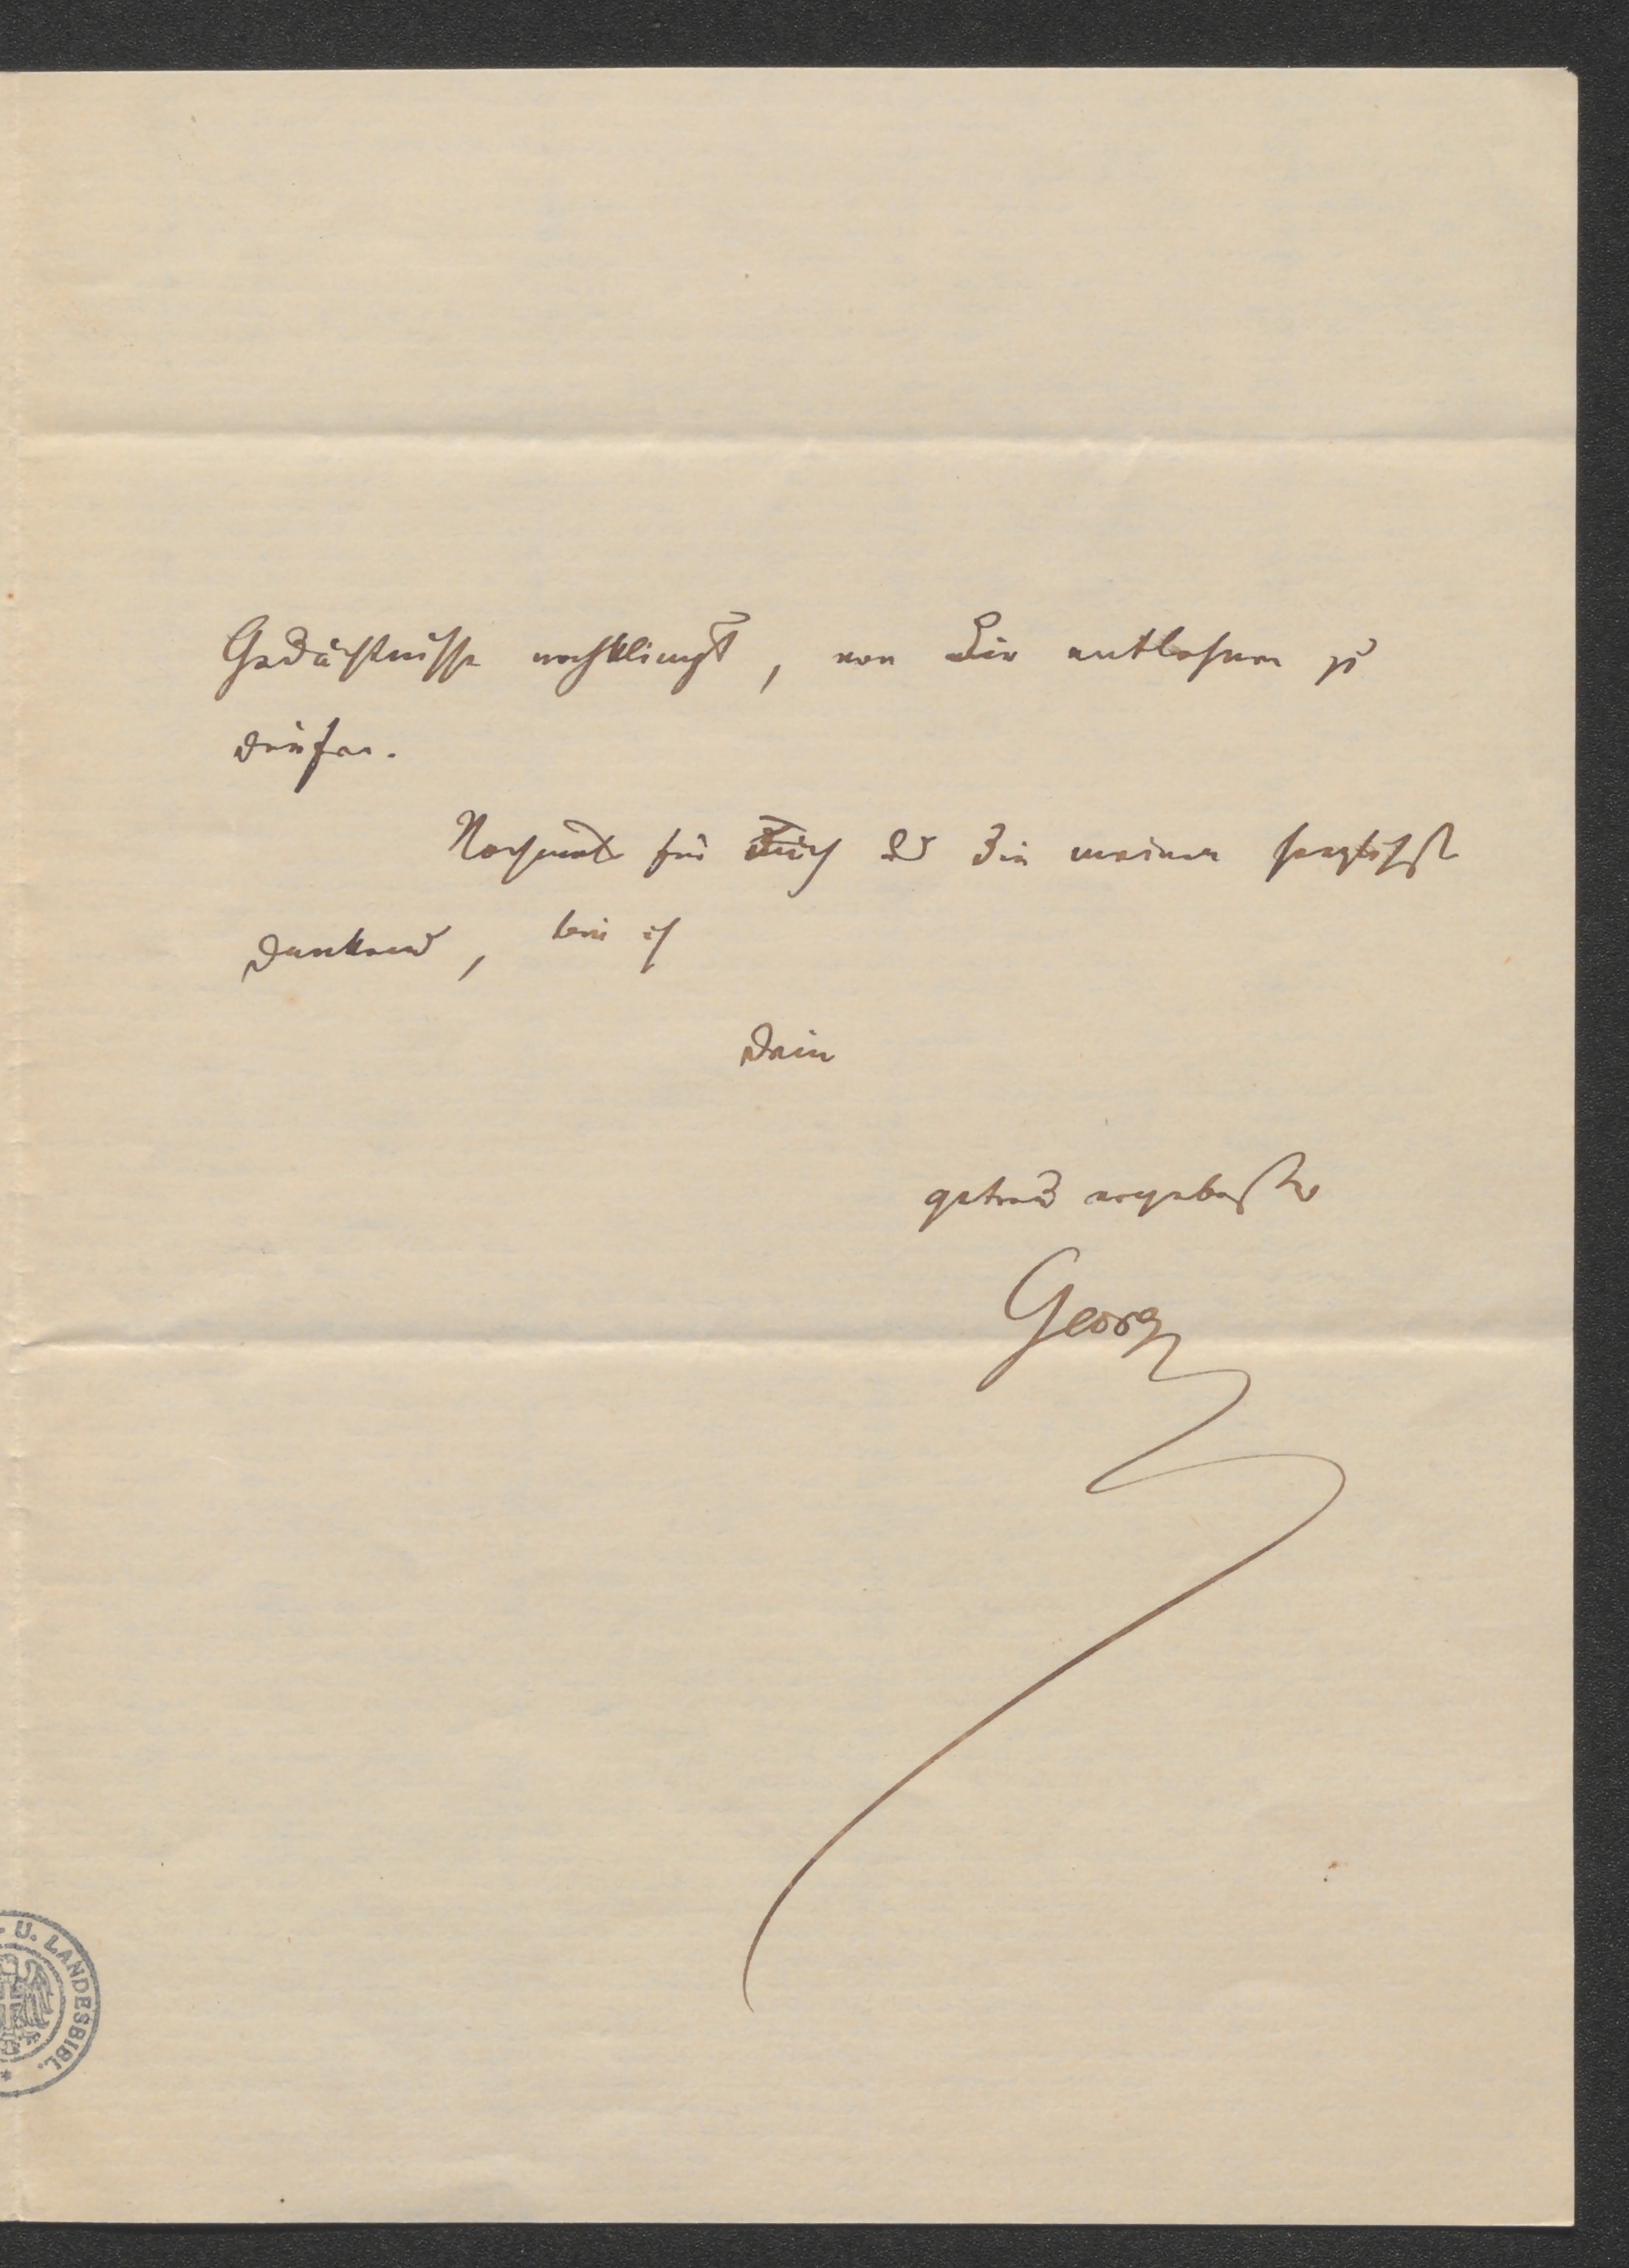 Gedächtnisse nachklingt, von Dir entlehnen zu
dürfen.
Nochmals für & die meinen herzlichst
dankend, bin ich
Dein
getreu ergebenster
Georg
U. LANDESBIBL.